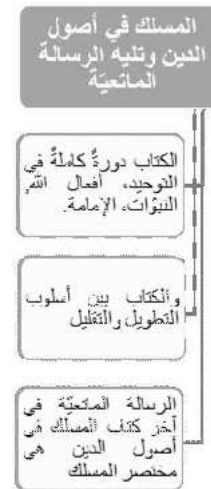 المسلك في أصول
الدين وتليه الرسالة
الماتعيّة
الكتاب دورةٌ كاملةٌ في
التوحيد، أفعال الله،
النبوّات، الإمامة.
والكتاب بين أسلوب
التطويل والتقليل
الرسالة الماتعيّة في
آخر كتاب المسلك في
أصول الدين هي
مختصر المسلك